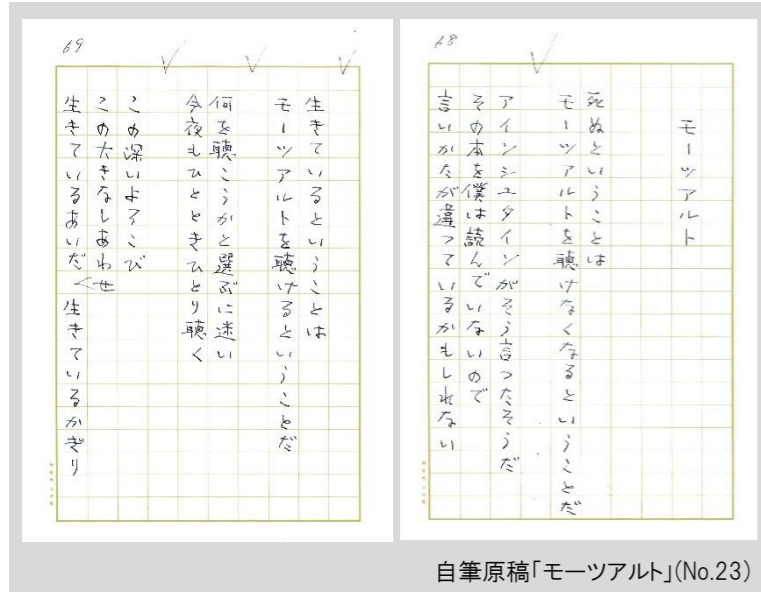 68
モーツアルト
死ぬということは
モーツアルトを聴けなくなるということだ
アインシュタインがそう言つたそうだ
その本を僕は読んでいないので
言いかたが違つているかもしれない
69
生きているということは
モーツアルトを聴けるということだ
何を聴こうかと選ぶに迷い
今夜もひとときひとり聴く
この深いよろこび
この大きなしあわせ
生きているあいだ 生きているかぎり
自筆原稿「モーツアルト」(No.23)